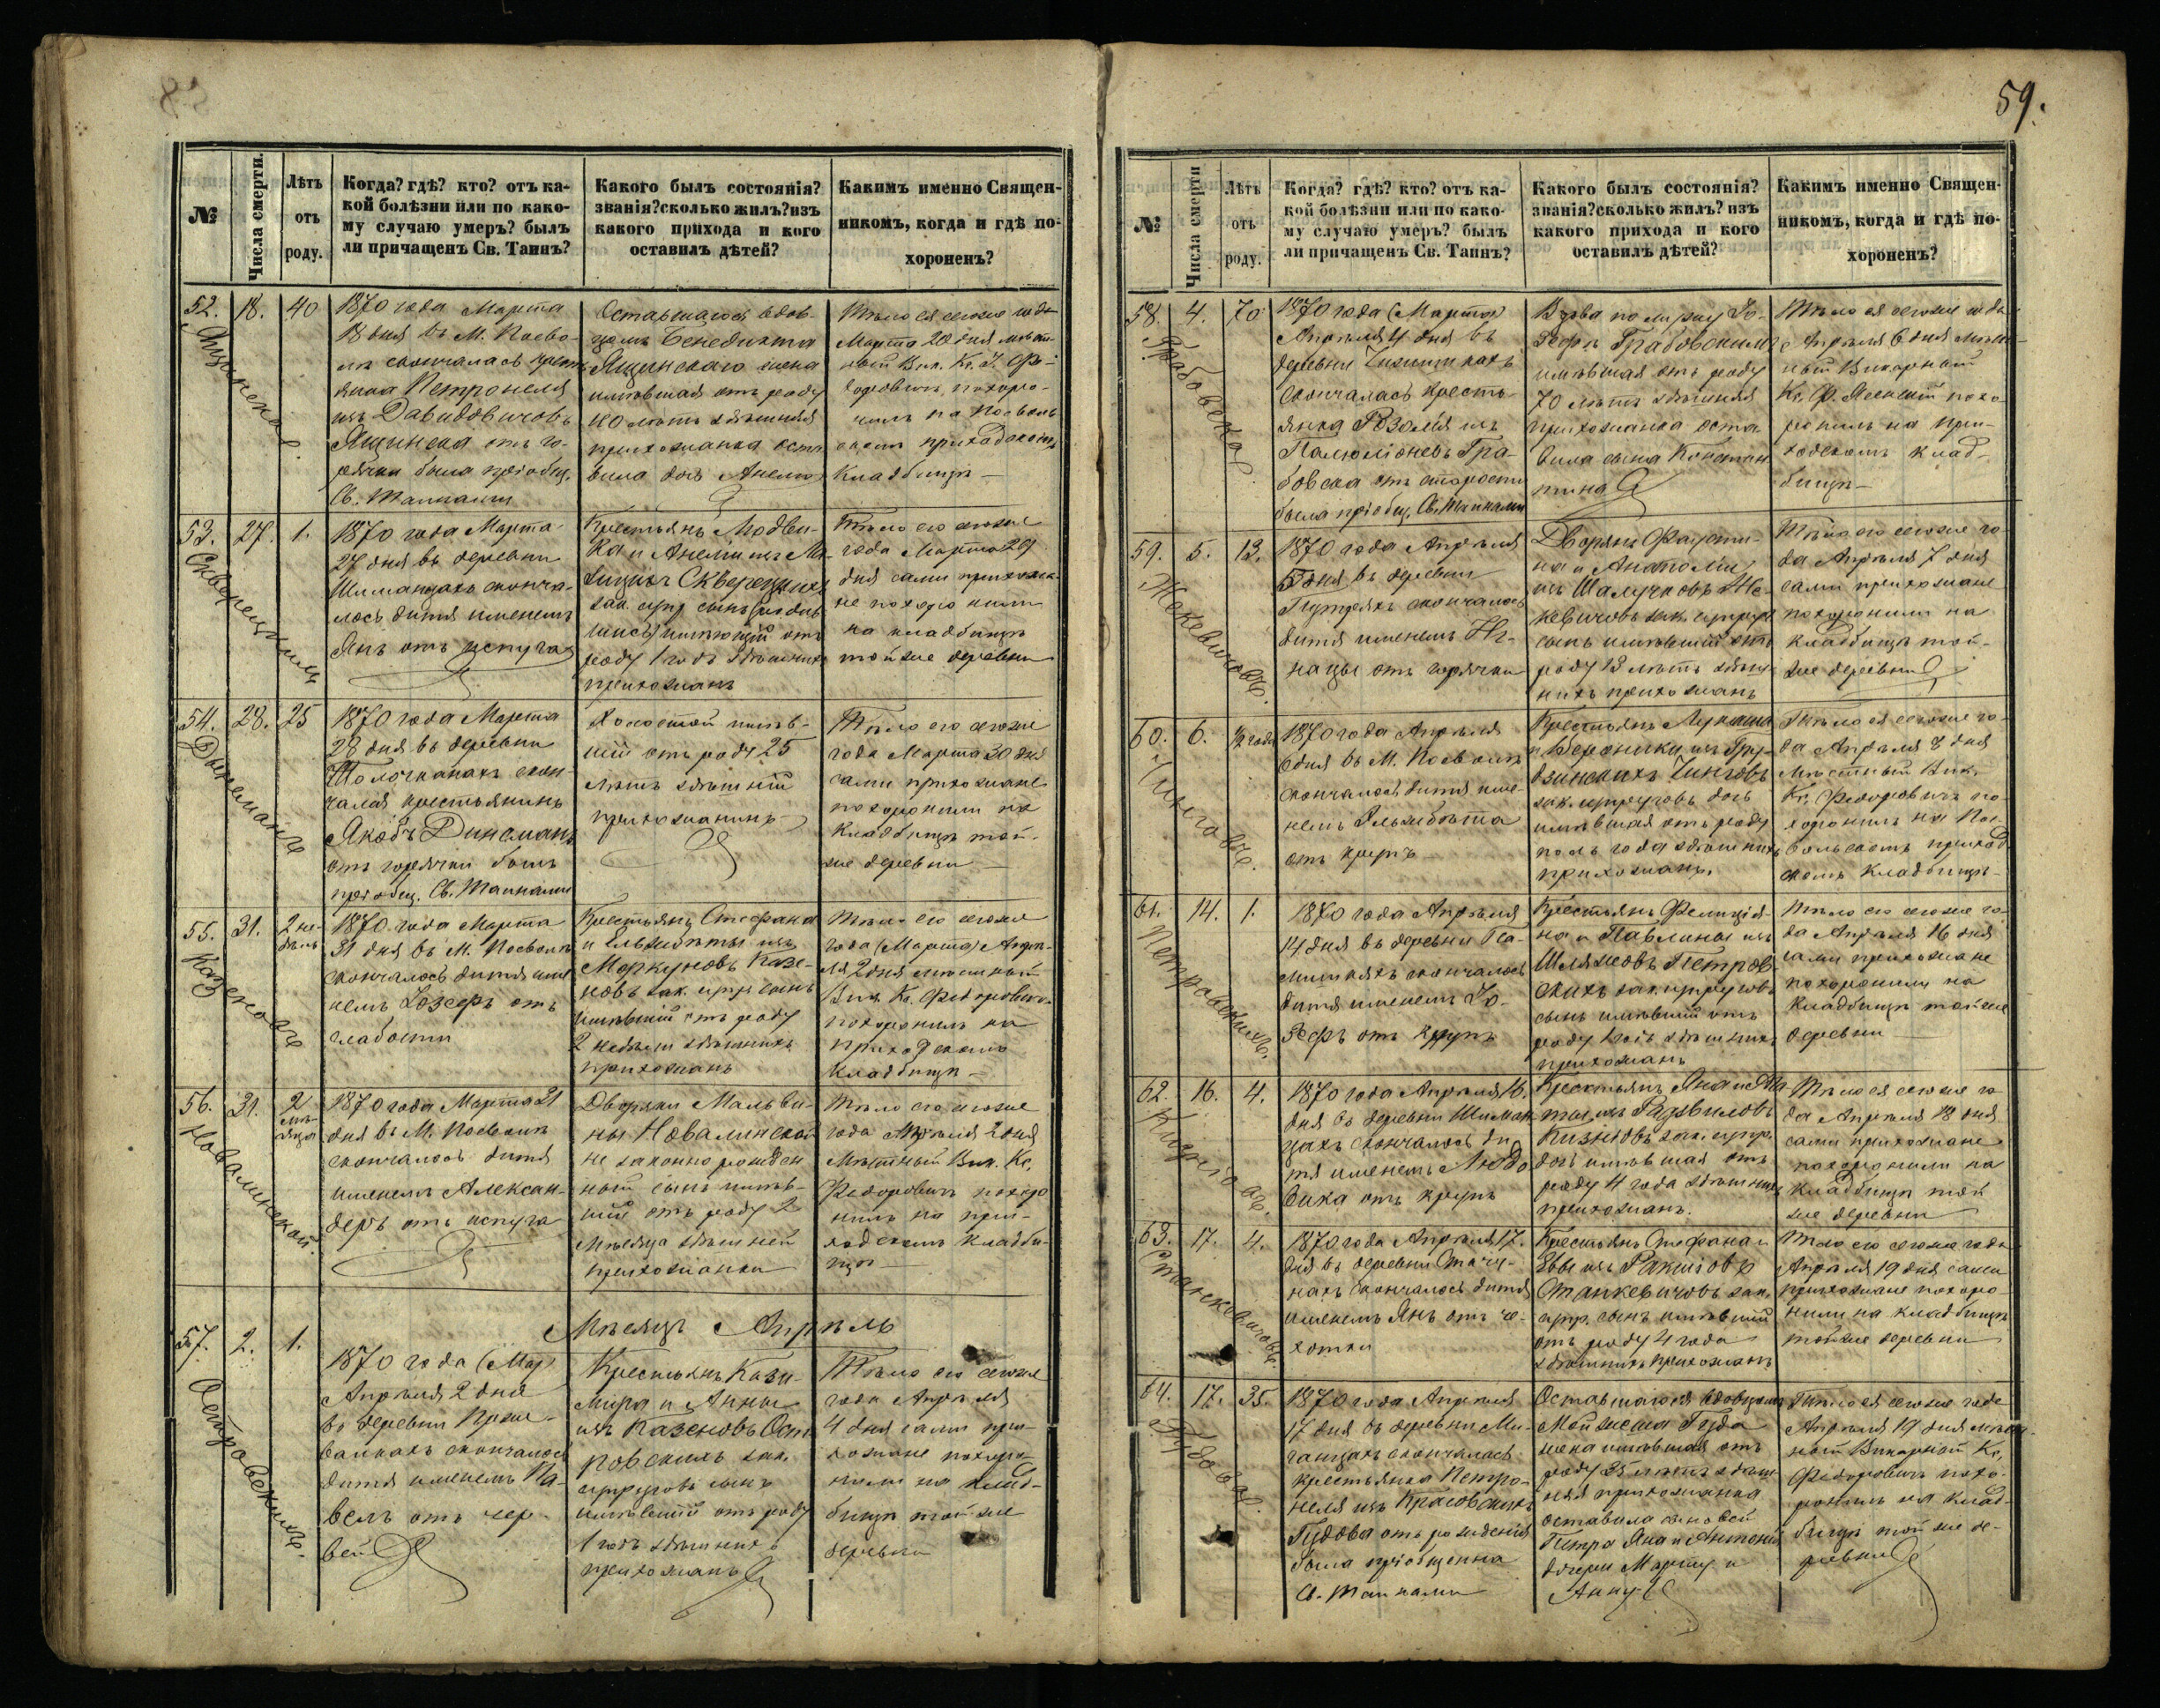 59.
№
Числа смерти.
Лѣтъ
отъ
роду.
Когда? гдѣ? кто? отъ ка-
кой болѣзни или по како-
му случаю умеръ? былъ
ли причащенъ Св. Таинъ?
Какого былъ состоянія?
званія? сколько жилъ? изъ
какого прихода и кого
оставилъ дѣтей?
Какимъ именно Священ-
никомъ, когда и гдѣ по-
хороненъ?
52.
18.
40
1870 года Марта
18 дня въ М. Посво-
лѣ скончалась крест
янка Петронеля
изъ Давидовичовъ
Ящинска отъ го-
рячки была пріобщ.
Св. Тайнами
Оставшагося вдов-
цомъ Бенедикта
Ящинскаго жена
имѣвшая отъ роду
40 лѣтъ здѣшняя
прихожанка оста
вила дочь Анелю
Тѣло ея сегоже года
Марта 20 дня мѣст-
ный Вик. Кс. Фе-
доровичъ похоро-
нилъ на Посволь
скомъ приходскомъ
кладбищѣ
53.
27.
1.
1870 года Марта
27 дня въ деревни
Шиманцахъ сконча-
лось дитя именемъ
Янъ отъ испуга
Крестьянъ Людви-
ка и Анеліи изъ
зак. супр. сынъ
имѣющій отъ
роду 1 годъ здѣшнихъ
прихожанъ
Тѣло его сегоже
года Марта 29
дня сами прихожа-
не похоронили
на кладбищѣ
той же деревни
54.
28.
25
1870 года Марта
28 дня въ деревни
скон-
чался крестьянинъ
Якобъ Динсманъ
отъ горячки былъ
пріобщ. Св. Тайнами
Холостой имѣв-
шій отъ роду 25
лѣтъ здѣшній
прихожанинъ
Тѣло его сегоже
года Марта 30 дня
сами прихожане
похоронили на
кладбищѣ той-
же деревни
55.
31.
2 не-
дѣль
1870 года Марта
31 дня въ М. Посволѣ
скончалось дитя име
немъ Іозефъ отъ
слабости
Крестьянъ Стефана
и Ельжбѣты изъ
Моркуновъ Казе-
новъ зак. супр. сынъ
имѣвшій отъ роду
2 недѣли здѣшнихъ
прихожанъ
Тѣло его сегоже
года (Марта) Апрѣ-
ля 2 дня мѣстный
Вик. Кс. Федоровичъ
похоронилъ на
приходскомъ
кладбищѣ
56.
31.
2
мѣ-
сяца
1870 года Марта 31
дня въ М. Посволѣ
скончалось дитя
именемъ Алексан-
деръ отъ испуга
Дворянки Мальви-
ны Новалинской
не законно рожден
ный сынъ имѣв-
шій отъ роду 2
мѣсяца здѣшней
прихожанки
Тѣло его сегоже
года Апрѣля 2 дня
Мѣстный Вик. Кс.
Федоровичъ похоро
нилъ на при-
ходскомъ кладби-
щѣ
Новалинской.
Мѣсяцъ Апрѣль
57.
2.
1.
1870 года (Мар)
Апрѣля 2 дня
въ деревни
скончалось
дитя именемъ Па-
велъ отъ чер-
вей
Крестьянъ Кази-
мира и Анны
изъ Казеновъ Ост
ровскихъ зак.
супруговъ сынъ
имѣвшій отъ роду
1 годъ здѣшнихъ
прихожанъ
Тѣло его сегоже
года Апрѣля
4 дня сами при-
хожане похоро-
нили на клад-
бищѣ той же
деревни
№
Числа смерти
Лѣтъ
отъ
роду.
Когда? гдѣ? кто? отъ ка-
кой болѣзни или по како-
му случаю умеръ? былъ
ли причащенъ Св. Таинъ?
Какого былъ состоянія?
званія? сколько жилъ? изъ
какого прихода и кого
оставилъ дѣтей?
Какимъ именно Священ-
никомъ, когда и гдѣ по-
хороненъ?
58.
4.
70
1870 года (Марта)
Апрѣля 4 дня въ
деревни
скончалась кресть
янка Розалія изъ
Гра-
бовска отъ старости
была пріобщ. Св. Тайнами
Вдова по мужу Іо-
зефѣ Грабовскимъ
имѣвшая отъ роду
70 лѣтъ здѣшняя
прихожанка оста
вила сына Констан
тина
Тѣло ея сегоже года
Апрѣля 6 дня мѣст-
ный Викарный
Кс. похо-
ронилъ на при-
ходскомъ клад-
бищѣ
59.
5.
13.
1870 года Апрѣля
5 дня въ деревни
скончалось
дитя именемъ Иг-
нацы отъ горячки
Дворянъ Фаусти-
на и Анатоліи
изъ Же-
кевичовъ зак. супруг
сынъ имѣвшій отъ
роду 13 лѣтъ здѣш-
нихъ прихожанъ
Тѣло его сегоже го-
да Апрѣля 7 дня
сами прихожане
похоронили на
кладбищѣ той-
же деревни
60.
6.
1/2 года
1870 года Апрѣля
6 дня въ М. Посволѣ
скончалось дитя име-
немъ Ельжбѣта
отъ крупъ
Крестьянъ
и Вероники изъ
зак. супруговъ дочь
имѣвшая отъ роду
полъ года здѣшнихъ
прихожанъ.
Тѣло ея сегоже го-
да Апрѣля 8 дня
Мѣстный Вик.
Кс. Федоровичъ по-
хоронилъ на Пос-
вольскомъ приход
скомъ кладбищѣ
61.
14.
1.
1870 года Апрѣля
14 дня въ деревни
скончалось
дитя именемъ Іо-
зефъ отъ крупъ
Крестьянъ Фелиція-
на и Павлины изъ
Петров-
скихъ зак. супруговъ
сынъ имѣвшій отъ
роду 1 годъ здѣшнихъ
прихожанъ
Тѣло его сегоже го-
да Апрѣля 16 дня
сами прихожане
похоронили на
кладбищѣ той же
деревни
62.
16.
4.
1870 года Апрѣля 16
дня въ деревни Шиман
цахъ скончалось ди-
тя именемъ Людо
вика отъ крупъ
Крестьянъ Яна и
изъ Радзвиловъ
зак. супр.
дочь имѣвшая отъ
роду 4 года здѣшнихъ
прихожанъ.
Тѣло ея сегоже го-
да Апрѣля 18 дня
сами прихожане
похоронили на
кладбищѣ той
же деревни
63.
17.
4.
1870 года Апрѣля 17.
дня въ деревни
скончалось дитя
именемъ Янъ отъ че-
хотки
Крестьянъ Стефана и
Евы изъ
Станкевичовъ зак.
супр. сынъ имѣвшій
отъ роду 4 года
здѣшнихъ прихожанъ
Тѣло его сегоже года
Апрѣля 19 дня сами
прихожане похоро-
нили на кладбищѣ
той же деревни
Станкевичовъ.
64.
17.
35.
1870 года Апрѣля
17 дня въ деревни
скончалась
крестьянка Петро-
неля изъ Красовскихъ
Гудова отъ рожденія
была пріобщенна
Св. Тайнами
Оставшагося вдовцомъ
Гуда
жена имѣвшая отъ
роду 35 лѣтъ здѣш
няя прихожанка
оставила сыновей
Петра Яна и Антонія
дочери Марту и
Анну
Тѣло ея сегоже года
Апрѣля 19 дня мѣст-
ный Викарный Кс.
Федоровичъ похо-
ронилъ на клад-
бищѣ той же де-
ревни